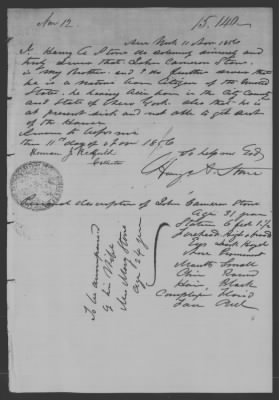 Nov 12
15,140
New York 11 Nov 1856
I. Henry A Stone do solemnly swear and
truly swear that John Cameron Stone
is my Brother and I do further swear that
he is a native born citizen of the United
States he having been born in the City County
and State of New York also that he is
at present sick and not able to get out
of the House
Sworn to before me
this 11th day of Nov 1856
So help me God
Henry A. Stone
Description of John Cameron Stone
Age 31 years
Stature 6 feet 1 1/2
Forehead High & Broad
Eyes Dark Hazel
Nose Prominent
Mouth Small
Chin Round
Hair Black
Complexion Florid
Face Full
To be accompanied
by his Wife
Mrs Mary Stone
age 24 years